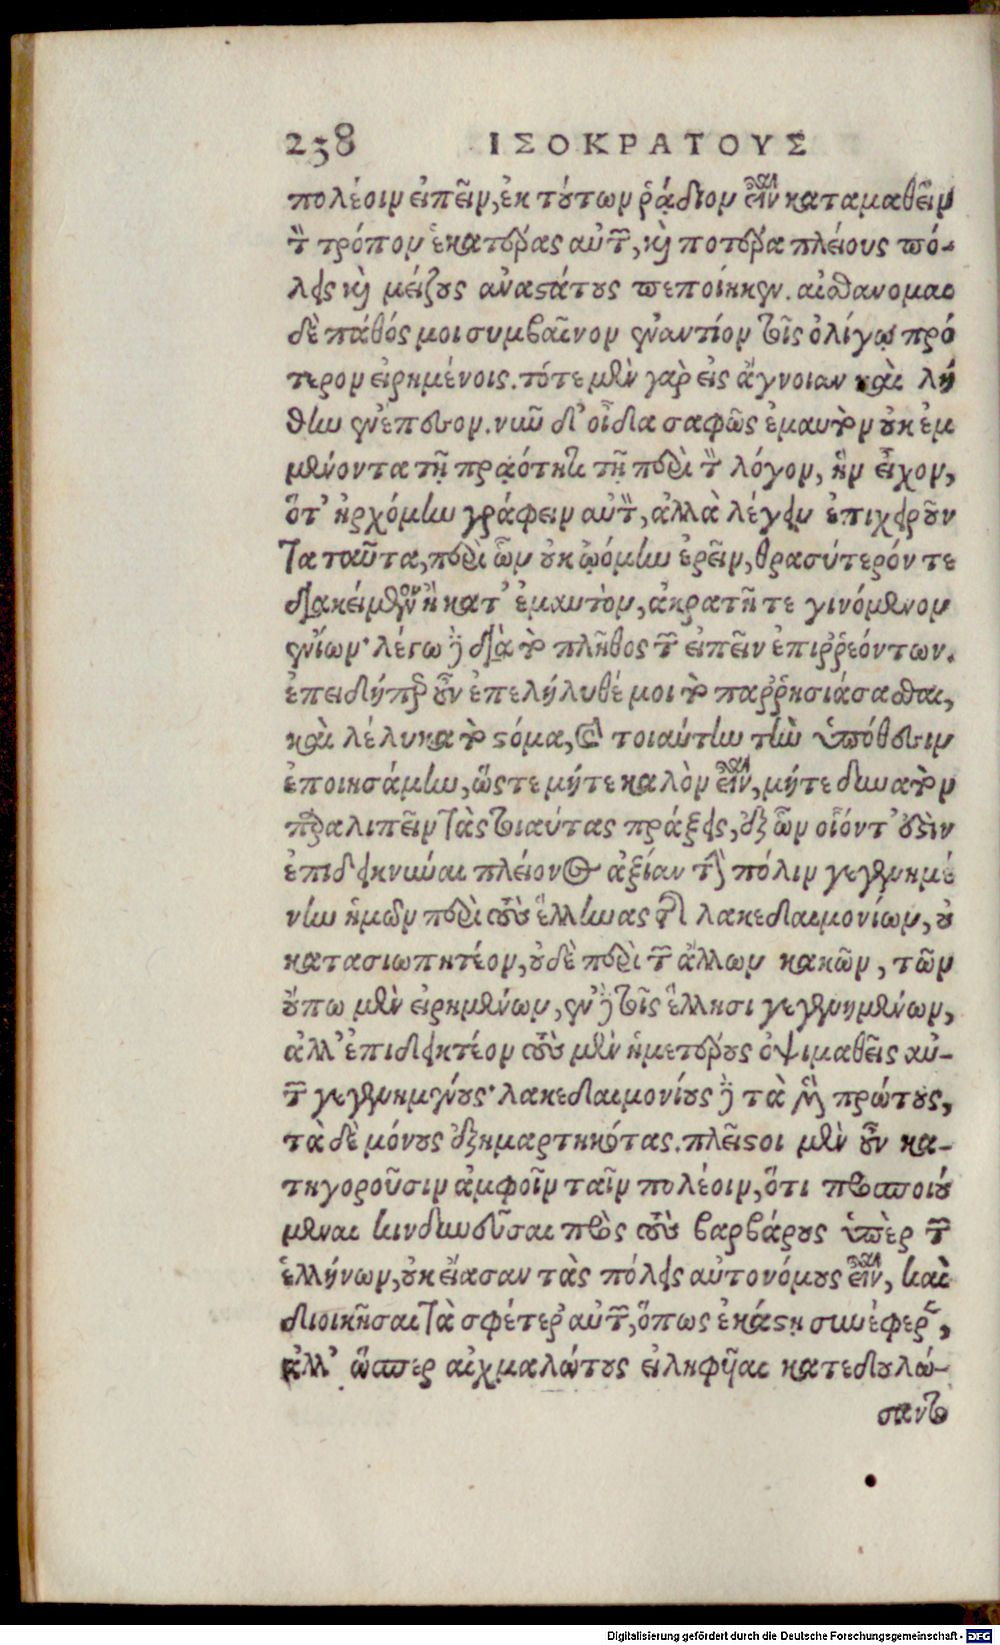 238 ΙΣΟΚΡΑΤΟΥΣ
πολέοιν εἰπεῖν, ἐκ τούτων ῥᾴδιον εἶναι καταμαθεῖν
τὸν τρόπον ἑκατέρας αὐτῶν, καὶ ποτέρα πλείους πό-
λεις καὶ μείζους ἀναστάτους πεποίηκεν. αἰσθάνομαι
δὲ πάθός μοι συμβαῖνον ἐναντίον τοῖς ὀλίγῳ πρό
τερον εἰρημένοις. τότε μὲν γὰρ εἰς ἄγνοιαν καὶ λή
θην ἐνέπεσον. νῦν δ' οἶδα σαφῶς ἐμαυτὸν οὐκ ἐμ
μένοντα τῇ πρᾳότητι τῇ περὶ τὸν λόγον, ἣν εἶχον,
ὅτ' ἠρχόμην γράφειν αὐτὸν, ἀλλὰ λέγειν ἐπιχειροῦν
τα ταῦτα, περὶ ὧν οὐκ ᾠόμην ἐρεῖν, θρασύτερόν τε
διακείμενον ἢ κατ' ἐμαυτὸν, ἀκρατῆ τε γινόμενον
ἐνίων· λέγω δὲ διὰ τὸ πλῆθος τῶν εἰπεῖν ἐπιῤῥεόντων.
ἐπειδήπερ οὖν ἐπελήλυθέ μοι τὸ παῤῥησιάσασθαι,
καὶ λέλυκα τὸ στόμα, καὶ τοιαύτην τὴν ὑπόθεσιν
ἐποιησάμην, ὥστε μήτε καλὸν εἶναι, μήτε δυνατὸν
παραλιπεῖν τὰς τοιαύτας πράξεις, ἐξ ὧν οἷόντ' οὐδὲν
ἐπιδεικνύναι πλείονος ἀξίαν τὴν πόλιν γεγενημέ
νην ἡμῶν περὶ τοὺς ἕλληνας τῆς λακεδαιμονίων, οὐ
κατασιωπητέον, οὐδὲ περὶ τῶν ἄλλων κακῶν, τῶν
οὔπω μὲν εἰρημένων, ἐν δὲ τοῖς ἕλλησι γεγενημένων,
ἀλλ' ἐπιδεικτέον τοὺς μὲν ἡμετέρους ὀψιμαθεῖς αὐ-
τῶν γεγενημένους· λακεδαιμονίους δὲ τὰ μὲν πρώτους,
τὰ δὲ μόνους ἐξημαρτηκότας. πλεῖστοι μὲν οὖν κα-
τηγοροῦσιν ἀμφοῖν ταῖν πολέοιν, ὅτι προσποιού
μεναι κινδυνεῦσαι πρὸς τοὺς βαρβάρους ὑπὲρ τῶν
ἑλλήνων, οὐκ εἴασαν τὰς πόλεις αὐτονόμους εἶναι, καὶ
διοικῆσαι τὰ σφέτερ' αὐτῶν, ὅπως ἑκάστῃ συνέφερεν,
ἀλλ' ὥσπερ αἰχμαλώτους εἰληφυῖαι κατεδουλώ-
σαντο
Digitalisierung gefördert durch die Deutsche Forschungsgemeinschaft - DFG